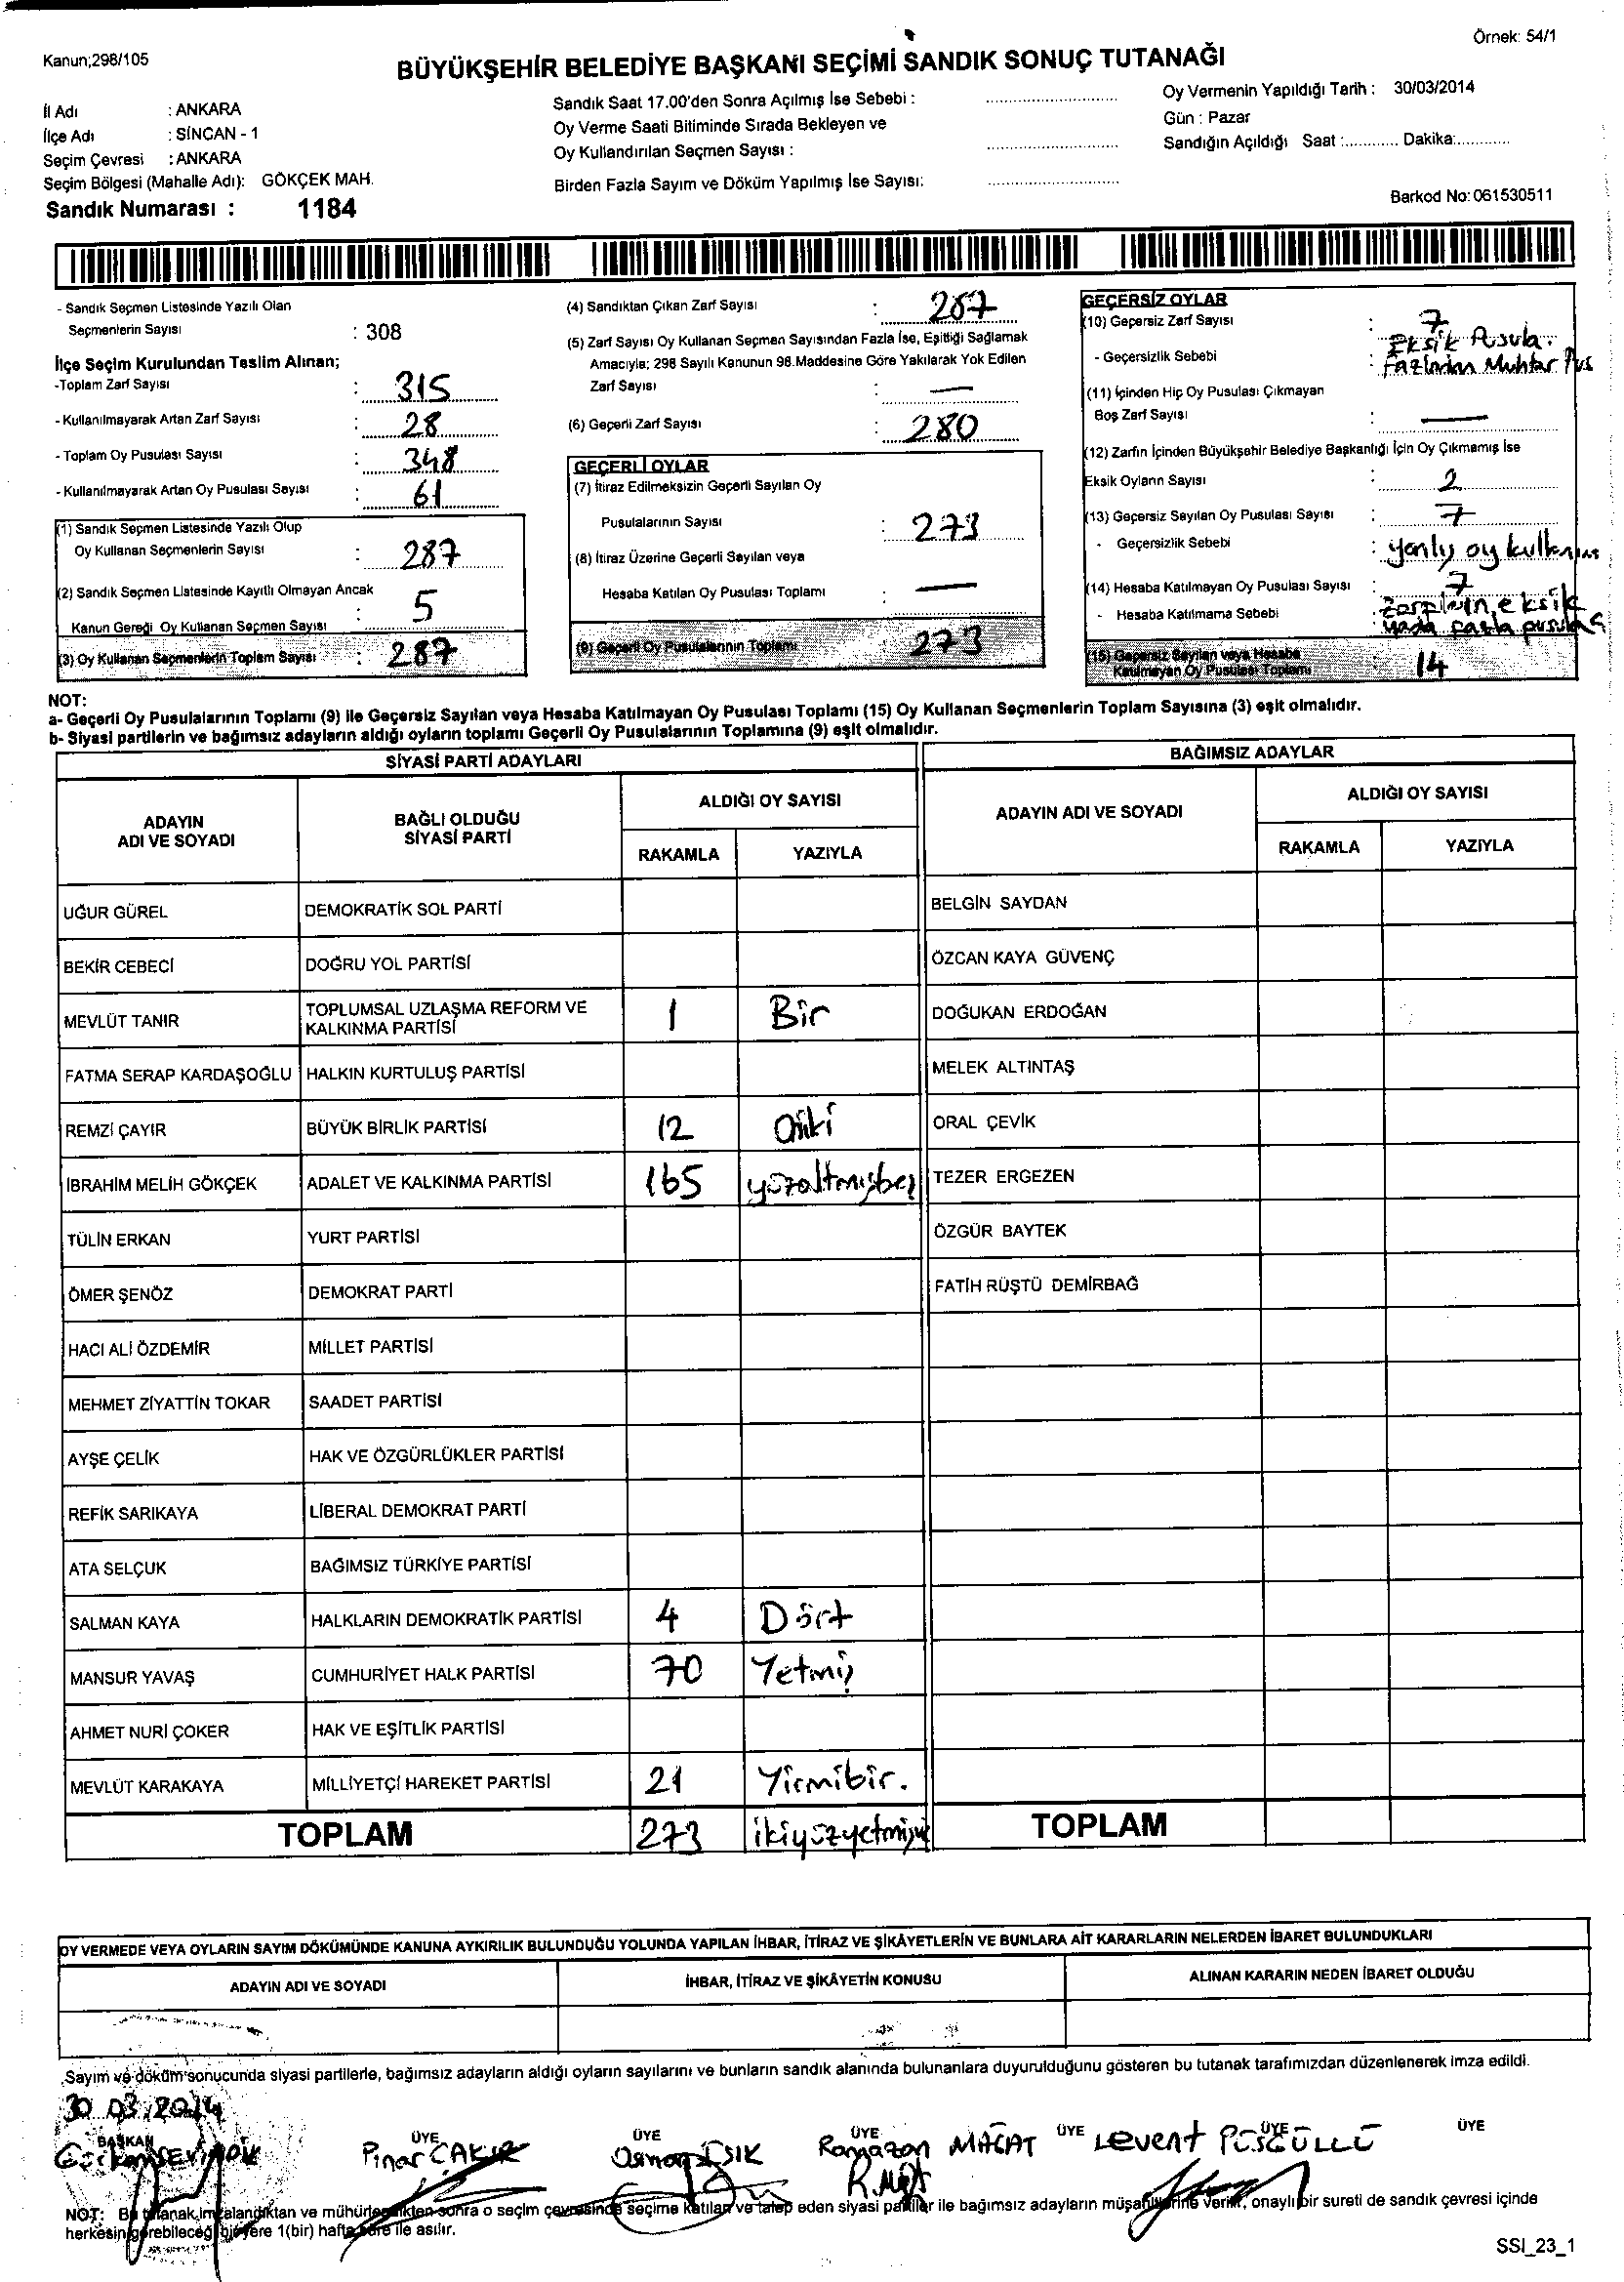 Örnek: 54/1
Kanun;298/105
BÜYÜKŞEHİR BELEDİYE BAŞKANI SEÇİMİ SANDIK SONUÇ TUTANAĞI
İl Adı : ANKARA
İlçe Adı : SİNCAN - 1
Seçim Çevresi : ANKARA
Seçim Bölgesi (Mahalle Adı): GÖKÇEK MAH.
Sandık Numarası : 1184
Sandık Saat 17.00'den Sonra Açılmış İse Sebebi :
Oy Verme Saati Bitiminde Sırada Bekleyen ve
Oy Kullandırılan Seçmen Sayısı :
Birden Fazla Sayım ve Döküm Yapılmış İse Sayısı:
Oy Vermenin Yapıldığı Tarih : 30/03/2014
Gün : Pazar
Sandığın Açıldığı Saat :............ Dakika:............
Barkod No: 061530511
- Sandık Seçmen Listesinde Yazılı Olan
Seçmenlerin Sayısı : 308
İlçe Seçim Kurulundan Teslim Alınan;
-Toplam Zarf Sayısı : 315
- Kullanılmayarak Artan Zarf Sayısı : 28
- Toplam Oy Pusulası Sayısı : 348
- Kullanılmayarak Artan Oy Pusulası Sayısı : 61
(1) Sandık Seçmen Listesinde Yazılı Olup
Oy Kullanan Seçmenlerin Sayısı : 287
(2) Sandık Seçmen Listesinde Kayıtlı Olmayan Ancak
Kanun Gereği Oy Kullanan Seçmen Sayısı : 5
(3) Oy Kullanan Seçmenlerin Toplam Sayısı : 287
(4) Sandıktan Çıkan Zarf Sayısı : 287
(5) Zarf Sayısı Oy Kullanan Seçmen Sayısından Fazla İse, Eşitliği Sağlamak
Amacıyla; 298 Sayılı Kanunun 98.Maddesine Göre Yakılarak Yok Edilen
Zarf Sayısı : —
(6) Geçerli Zarf Sayısı : 280
GEÇERLİ OYLAR
(7) İtiraz Edilmeksizin Geçerli Sayılan Oy
Pusulalarının Sayısı : 273
(8) İtiraz Üzerine Geçerli Sayılan veya
Hesaba Katılan Oy Pusulası Toplamı : —
(9) Geçerli Oy Pusulalarının Toplamı 273
GEÇERSİZ OYLAR
(10) Geçersiz Zarf Sayısı : 7
- Geçersizlik Sebebi : Eksik Pusula.
Fazladan Muhtar Pus
(11) İçinden Hiç Oy Pusulası Çıkmayan
Boş Zarf Sayısı : —
(12) Zarfın İçinden Büyükşehir Belediye Başkanlığı İçin Oy Çıkmamış İse
Eksik Oyların Sayısı : 2
(13) Geçersiz Sayılan Oy Pusulası Sayısı : 7
- Geçersizlik Sebebi : yanlış oy kullanım
(14) Hesaba Katılmayan Oy Pusulası Sayısı : 7
- Hesaba Katılmama Sebebi : zarfların eksik
yada fazla pusula
(15) Geçersiz Sayılan veya Hesaba
Katılmayan Oy Pusulası Toplamı 14
NOT:
a- Geçerli Oy Pusulalarının Toplamı (9) ile Geçersiz Sayılan veya Hesaba Katılmayan Oy Pusulası Toplamı (15) Oy Kullanan Seçmenlerin Toplam Sayısına (3) eşit olmalıdır.
b- Siyasi partilerin ve bağımsız adayların aldığı oyların toplamı Geçerli Oy Pusulalarının Toplamına (9) eşit olmalıdır.
SİYASİ PARTİ ADAYLARI
ADAYIN ADI VE SOYADI
BAĞLI OLDUĞU SİYASİ PARTİ
ALDIĞI OY SAYISI
RAKAMLA YAZIYLA
UĞUR GÜREL DEMOKRATİK SOL PARTİ
BEKİR CEBECİ DOĞRU YOL PARTİSİ
MEVLÜT TANIR TOPLUMSAL UZLAŞMA REFORM VE KALKINMA PARTİSİ 1 Bir
FATMA SERAP KARDAŞOĞLU HALKIN KURTULUŞ PARTİSİ
REMZİ ÇAYIR BÜYÜK BİRLİK PARTİSİ 12 Oniki
İBRAHİM MELİH GÖKÇEK ADALET VE KALKINMA PARTİSİ 165 yüzaltmışbeş
TÜLİN ERKAN YURT PARTİSİ
ÖMER ŞENÖZ DEMOKRAT PARTİ
HACI ALİ ÖZDEMİR MİLLET PARTİSİ
MEHMET ZİYATTİN TOKAR SAADET PARTİSİ
AYŞE ÇELİK HAK VE ÖZGÜRLÜKLER PARTİSİ
REFİK SARIKAYA LİBERAL DEMOKRAT PARTİ
ATA SELÇUK BAĞIMSIZ TÜRKİYE PARTİSİ
SALMAN KAYA HALKLARIN DEMOKRATİK PARTİSİ 4 Dört
MANSUR YAVAŞ CUMHURİYET HALK PARTİSİ 70 Yetmiş
AHMET NURİ ÇOKER HAK VE EŞİTLİK PARTİSİ
MEVLÜT KARAKAYA MİLLİYETÇİ HAREKET PARTİSİ 21 Yirmibir.
TOPLAM 273 ikiyüzyetmişüç
BAĞIMSIZ ADAYLAR
ADAYIN ADI VE SOYADI
ALDIĞI OY SAYISI
RAKAMLA YAZIYLA
BELGİN SAYDAN
ÖZCAN KAYA GÜVENÇ
DOĞUKAN ERDOĞAN
MELEK ALTINTAŞ
ORAL ÇEVİK
TEZER ERGEZEN
ÖZGÜR BAYTEK
FATİH RÜŞTÜ DEMİRBAĞ
TOPLAM
OY VERMEDE VEYA OYLARIN SAYIM DÖKÜMÜNDE KANUNA AYKIRILIK BULUNDUĞU YOLUNDA YAPILAN İHBAR, İTİRAZ VE ŞİKÂYETLERİN VE BUNLARA AİT KARARLARIN NELERDEN İBARET BULUNDUKLARI
ADAYIN ADI VE SOYADI İHBAR, İTİRAZ VE ŞİKÂYETİN KONUSU ALINAN KARARIN NEDEN İBARET OLDUĞU
Sayım ve döküm sonucunda siyasi partilerle, bağımsız adayların aldığı oyların sayılarını ve bunların sandık alanında bulunanlara duyurulduğunu gösteren bu tutanak tarafımızdan düzenlenerek imza edildi.
30.03.2014
BAŞKAN ÜYE ÜYE ÜYE ÜYE ÜYE ÜYE
Pınar ÇAKIR Osman IŞIK Ramazan MACAT Levent PÜSGÜLLÜ
NOT: Bu tutanak imzalandıktan ve mühürlendikten sonra o seçim çevresinde seçime katılan ve talep eden siyasi partiler ile bağımsız adayların müşahitlerine verilir, onaylı bir sureti de sandık çevresi içinde
herkesin görebileceği bir yere 1(bir) hafta süre ile asılır.
SSI_23_1